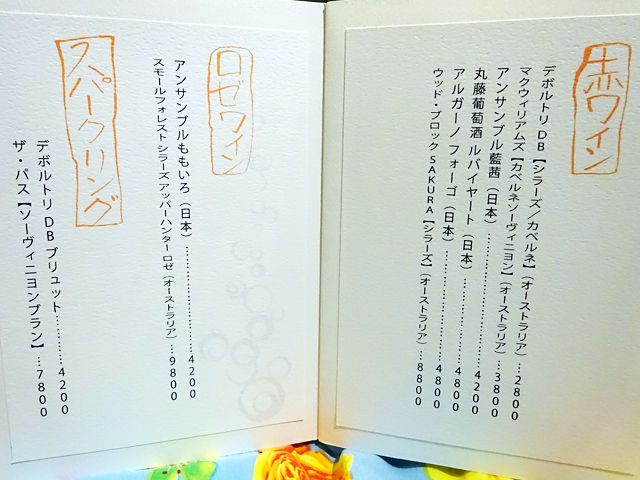 赤ワイン
デボルトリ DB【シラーズ／カベルネ】(オーストラリア)…2800
マクウィリアムズ【カベルネソーヴィニヨン】(オーストラリア)…3800
アンサンブル藍茜(日本)…………………………4200
丸藤葡萄酒 ルバイヤート(日本)…………………4800
アルガーノ フォーゴ(日本)………………………4800
ウッド・ブロック SAKURA【シラーズ】(オーストラリア)…8800
ロゼワイン
アンサンブルももいろ(日本)……………………4200
スモールフォレスト シラーズ アッパーハンター ロゼ(オーストラリア)…9800
スパークリング
デボルトリ DB ブリュット…………4200
ザ・パス【ソーヴィニヨンブラン】…7800